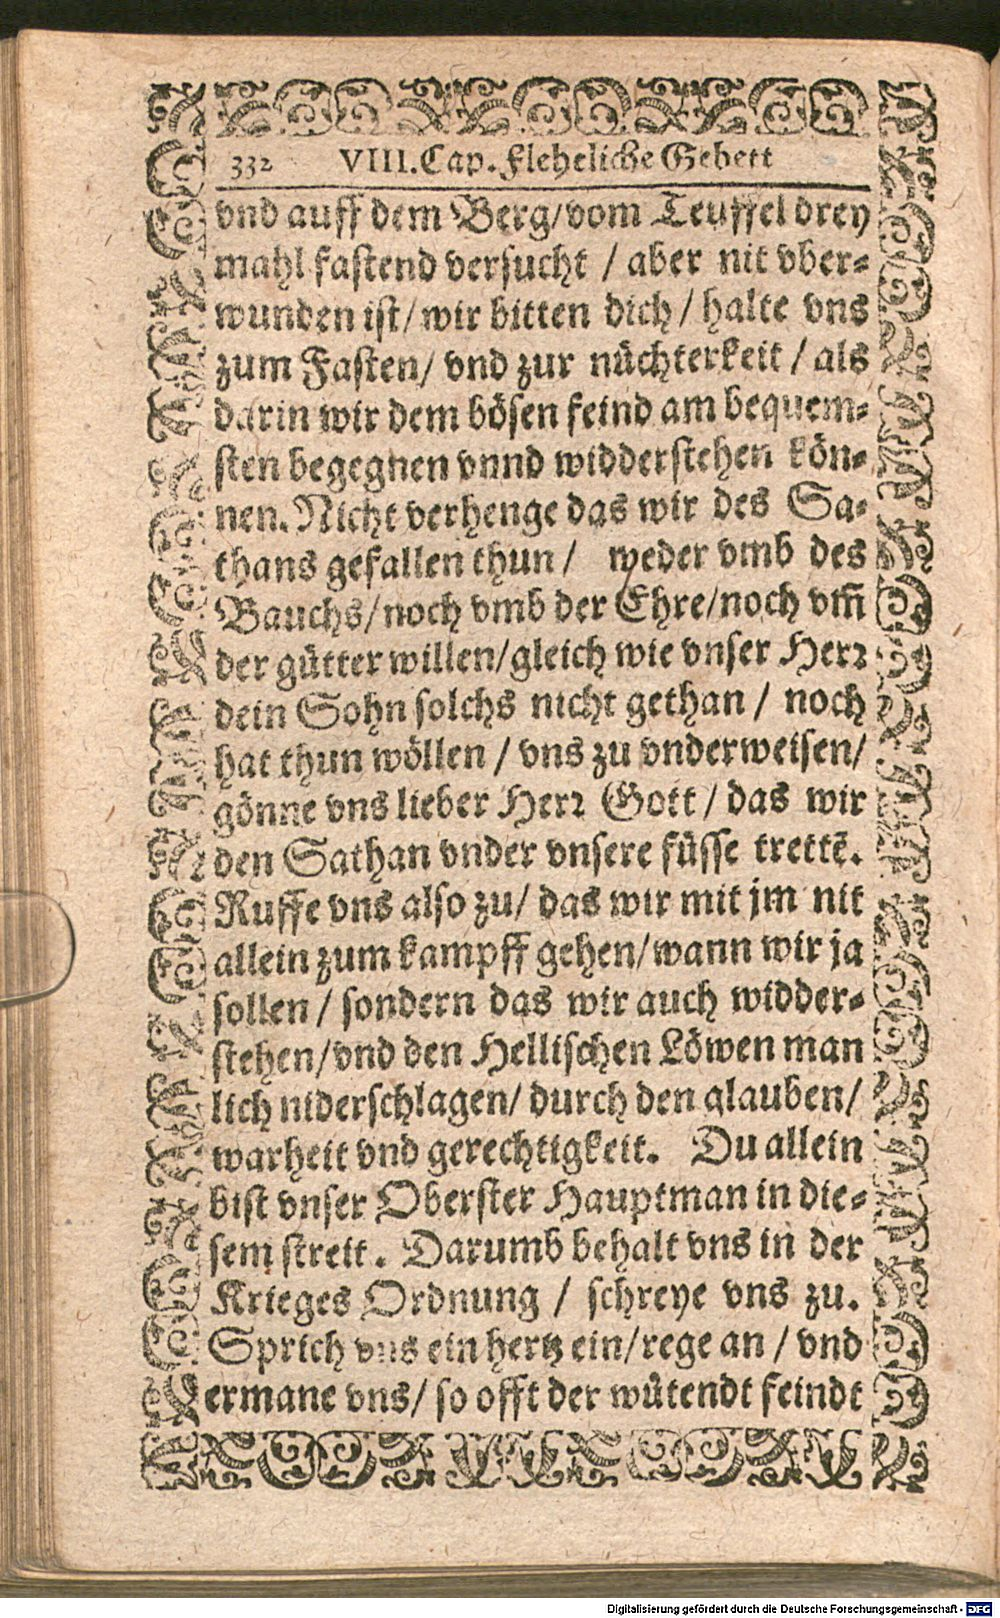 332 VIII. Cap. Fleheliche Gebett
vnd auff dem Berg/vom Teuffel drey
mahl fastend versucht / aber nit vber⸗
wunden ist/ wir bitten dich / halte vns
zum Fasten/ vnd zur nüchterkeit / als
darin wir dem bösen feind am bequem⸗
sten begegnen vnnd widderstehen kön⸗
nen. Nicht verhenge das wir des Sa⸗
thans gefallen thun / weder vmb des
Bauchs/noch vmb der Ehre/noch vm̃
der gütter willen/gleich wie vnser Herr
dein Sohn solchs nicht gethan / noch
hat thun wöllen / vns zu vnderweisen/
gönne vns lieber Herr Gott / das wir
den Sathan vnder vnsere füsse trettẽ.
Ruffe vns also zu/ das wir mit jm nit
allein zum kampff gehen/wann wir ja
sollen / sondern das wir auch widder⸗
stehen/vnd den Hellischen Löwen man
lich niderschlagen/ durch den glauben/
warheit vnd gerechtigkeit. Du allein
bist vnser Oberster Hauptman in die⸗
sem streit. Darumb behalt vns in der
Krieges Ordnung / schreye vns zu.
Sprich vns ein hertz ein/rege an / vnd
ermane vns/ so offt der wütendt feindt
Digitalisierung gefördert durch die Deutsche Forschungsgemeinschaft - DFG